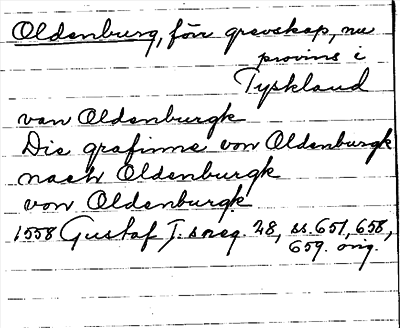 Oldenburg, förr grevskap, nu
provins i
Tyskland
van Oldenburgk
Die grafinne von Oldenburgk
nach Oldenburgk
von Oldenburgk
1558 Gustaf I. s reg. 28, ss. 657, 658,
659. orig.